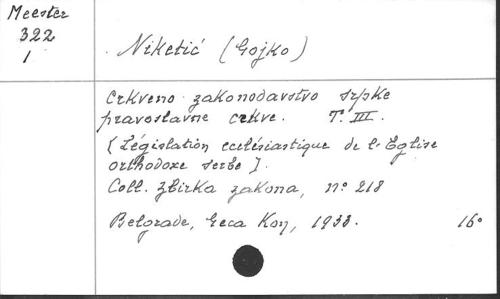 Meester
322
1
Niketić (Gojko)
Crkveno zakonodavstvo srpke
pravoslavne crkve. T. III.
[Législation ecclésiastique de l'Eglise
orthodoxe serbe].
Coll. Zbirka zakona, nº 218
Belgrade, Geca Kon, 1933. 16º